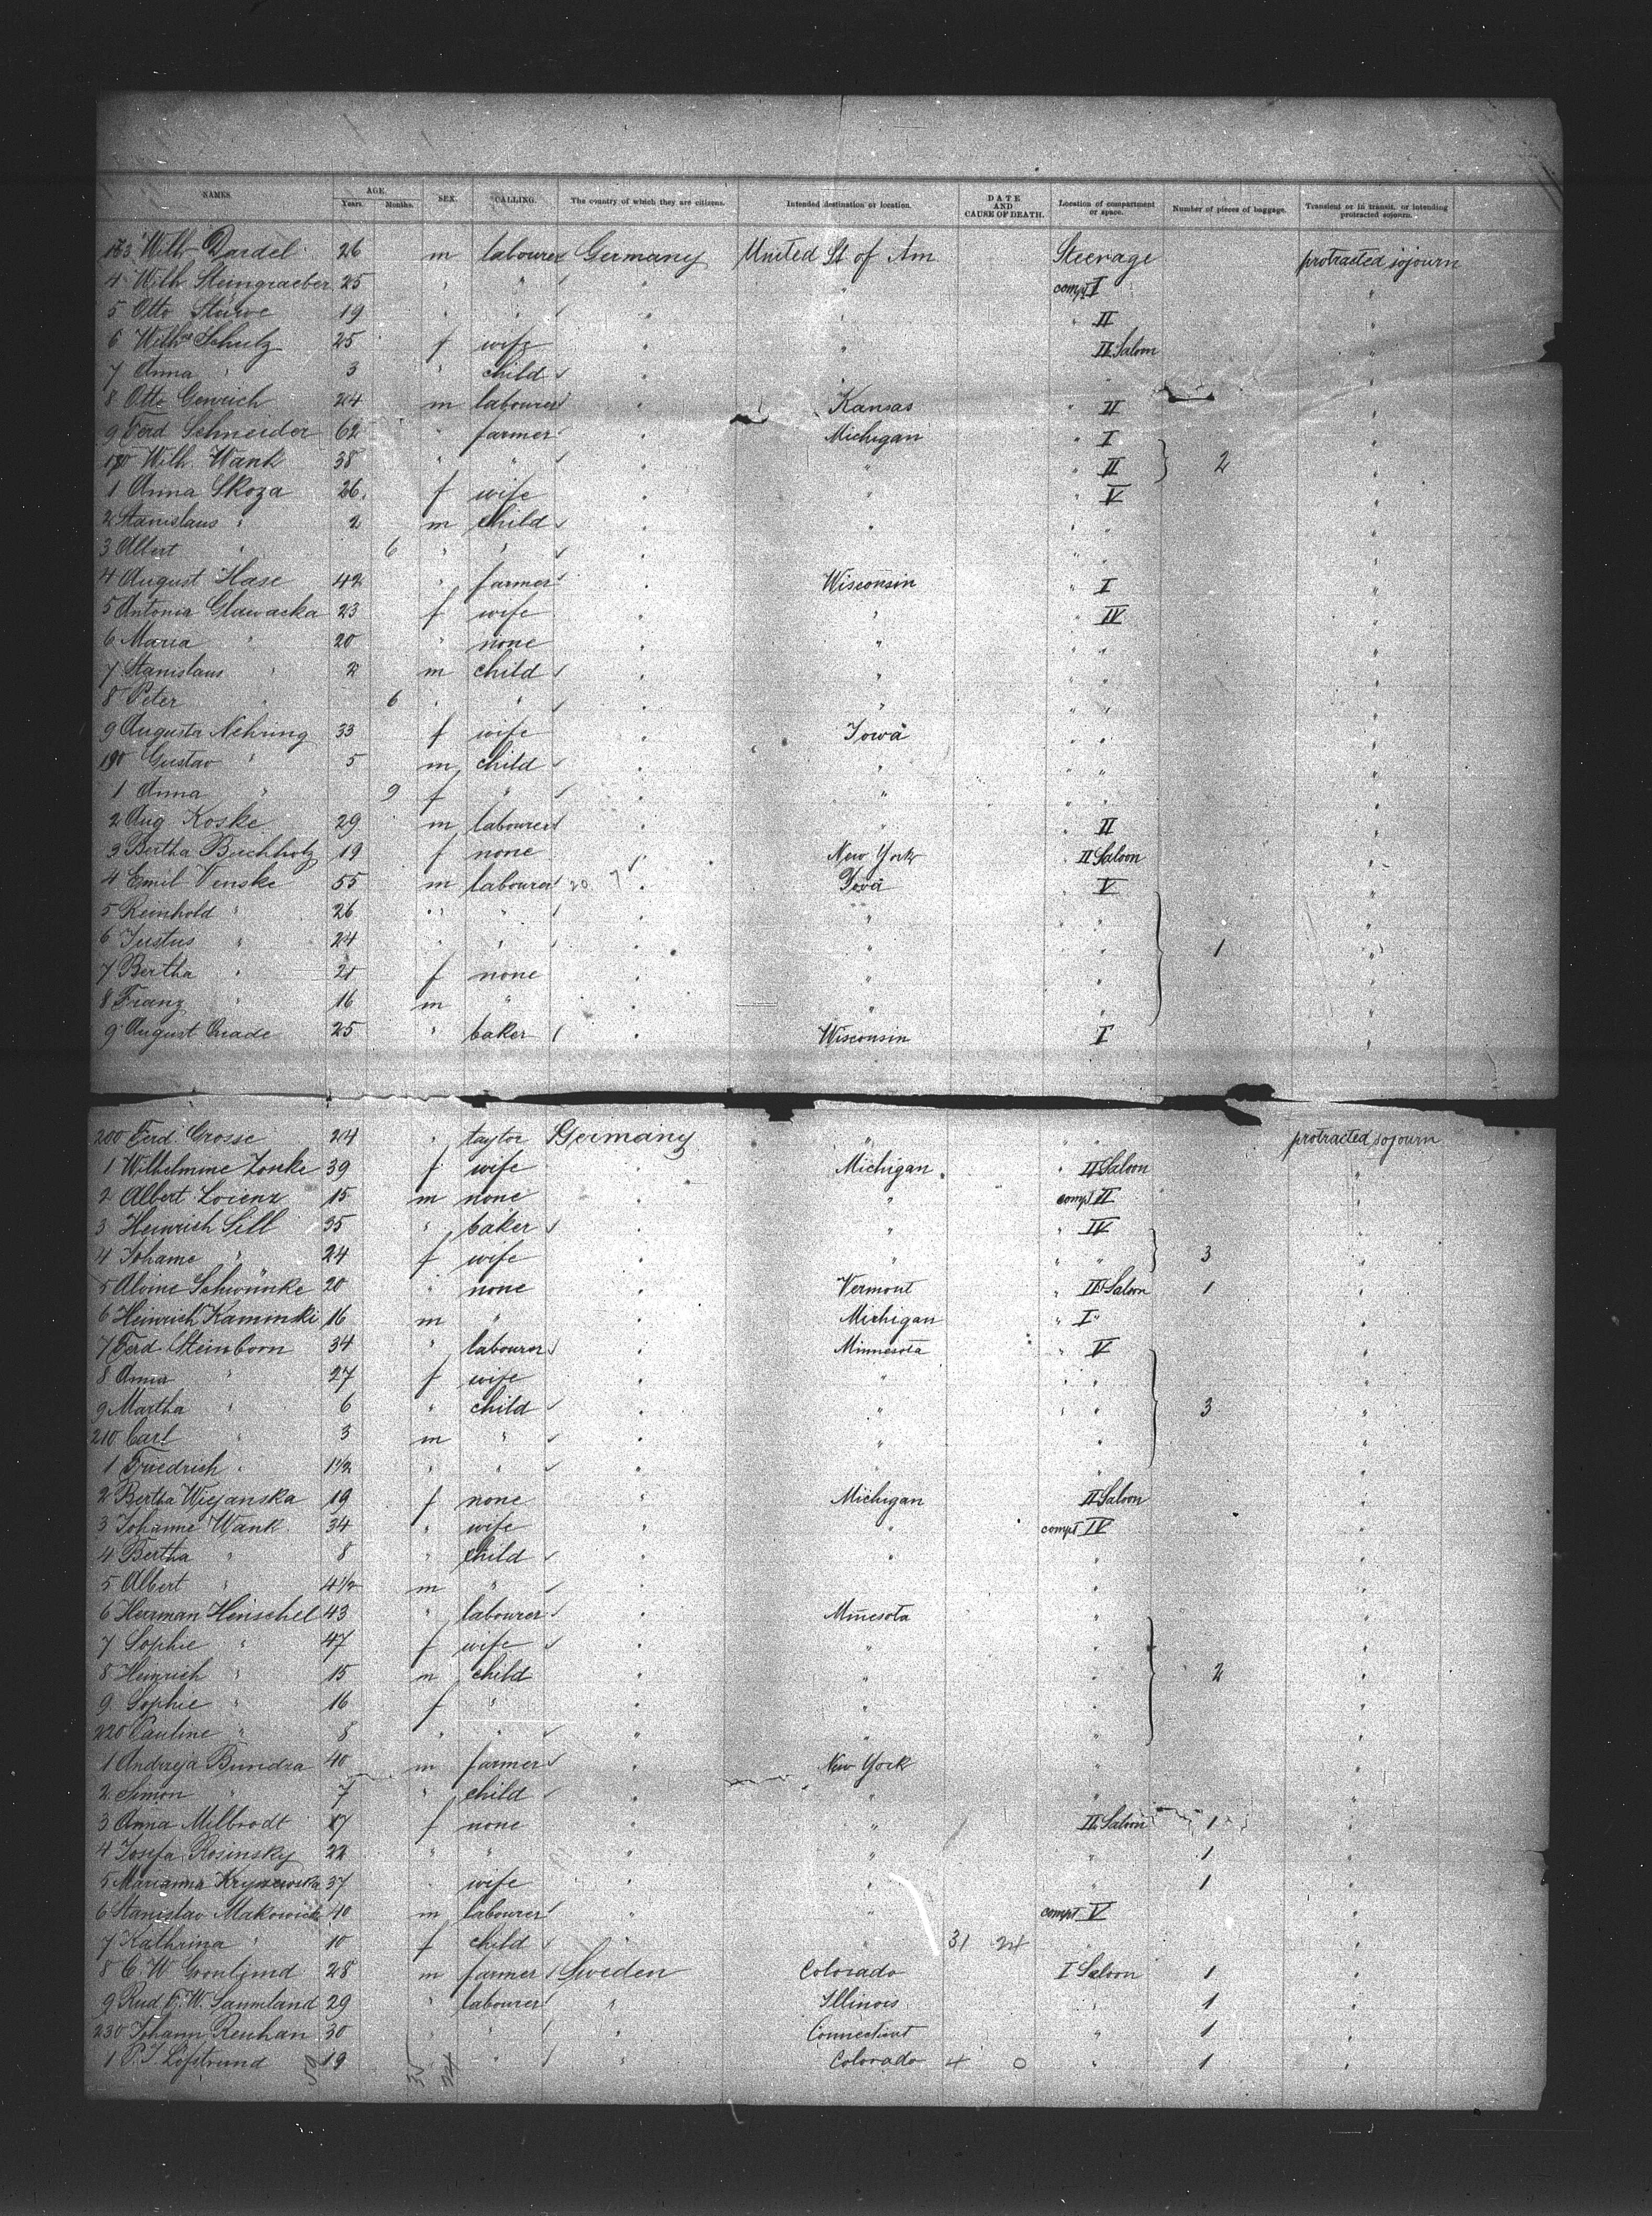 NAMES. AGE. Years. Months. SEX. CALLING. The country of which they are citizens. Intended destination or location. DATE AND CAUSE OF DEATH. Location of compartment or space. Number of pieces of baggage. Transient or in transit, or intending protracted sojourn.
173 Wilh Dardel 26 m labourer Germany United St of Am Steerage protracted sojourn
4 Wilh Steingraeber 25 " " " " compt I "
5 Otto Stüwe 19 " " " " " II "
6 Wilhne Schulz 25 f wife " " II Saloon "
7 Anna " 3 " child " " " "
8 Otto Genrich 24 m labourer " Kansas " II "
9 Ferd Schneider 62 " farmer " Michigan " I "
180 Wilh Wank 38 " " " " " II 2 "
1 Anna Skoza 26 f wife " " " V "
2 Stanislaus " 2 m child " " " " "
3 Albert " 6 " " " " " "
4 August Hase 42 " farmer " Wisconsin " I "
5 Antonia Glawacka 23 f wife " " " IV "
6 Maria " 20 " none " " " " "
7 Stanislaus " 2 m child " " " " "
8 Peter " 6 " " " " " " "
9 Augusta Nehring 33 f wife " Iowa " " "
190 Gustav " 5 m child " " " " "
1 Anna " 9 f " " " " " "
2 Aug Koske 29 m labourer " " " II "
3 Bertha Buchholz 19 f none " New York " II Saloon "
4 Emil Venske 55 m labourer 20 7 " Iova " V "
5 Reinhold " 26 " " " " " " "
6 Justus " 24 " " " " " 1 "
7 Bertha " 21 f none " " " "
8 Franz " 16 m " " " " "
9 August Quade 25 " baker " Wisconsin I "
200 Ferd Grosse 24 " taylor Germany " " " protracted sojourn
1 Wilhelmine Zonke 39 f wife " Michigan " II Saloon "
2 Albert Lorenz 15 m none " " compt II "
3 Heinrich Sill 35 " baker " " " IV "
4 Johanne " 24 f wife " " " " 3 "
5 Alvine Schwünke 20 " none " Vermont " II Saloon 1 "
6 Heinrich Kaminski 16 m " " Michigan " I "
7 Ferd Steinborn 34 " labourer " Minnesota " V "
8 Anna " 27 f wife " " " " "
9 Martha " 6 " child " " " " 3 "
210 Carl " 3 m " " " " "
1 Friedrich " 1 1/2 " " " " " "
2 Bertha Wiejanska 19 f none " Michigan II Saloon "
3 Johanne Wank 34 " wife " " compt IV "
4 Bertha " 8 " child " " " "
5 Albert " 4 1/2 m " " " "
6 Herman Henschel 43 " labourer " Minesota " "
7 Sophie " 47 f wife " " " "
8 Heinrich " 15 m child " " " 2 "
9 Sophie " 16 f " " " " "
220 Pauline " 8 " " " " " "
1 Andreja Bundra 40 m farmer " New York " "
2 Simon " 7 " child " " " "
3 Anna Milbrodt 17 f none " " II Saloon 1 "
4 Josefa Rosinsky 22 " " " " " 1 "
5 Marianna Kryzewska 37 " wife " " " 1 "
6 Stanislav Makowicki 40 m labourer " " compt V "
7 Kathrina " 10 f child " " 31 24 " "
8 C W Gronlund 28 m farmer Sweden Colorado I Saloon 1 "
9 Rud G. W. Sannland 29 " labourer " Illinois " 1 "
230 Johann Renhan 30 " " " Connecticut " 1 "
1 P. J Löfstrund 19 " " Colorado 4 0 " 1 "
59 35 24